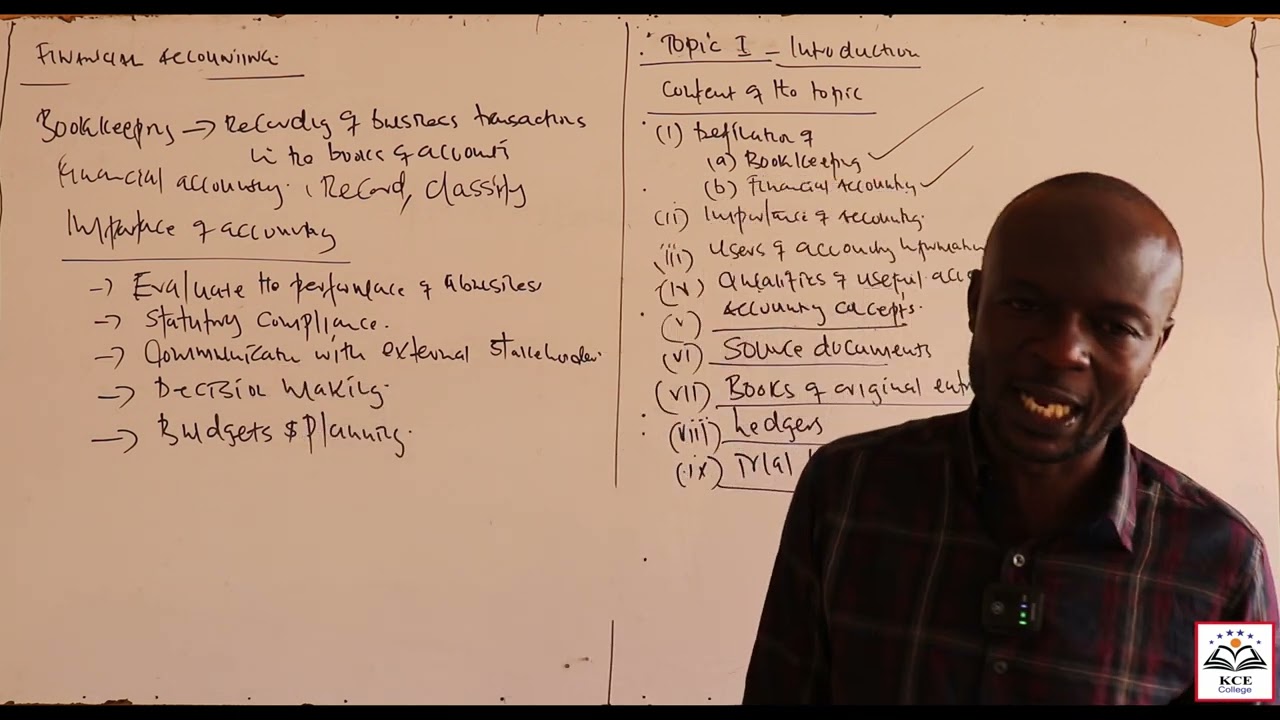 FINANCIAL ACCOUNTING.
Bookkeeping → Recording of business transactions
in the books of accounts
Financial accounting. Record, classify
Importance of accounting
→ Evaluate the performance of a business
→ Statutory compliance.
→ Communication with external stakeholder.
→ Decision making.
→ Budgets $ Planning.
Topic I - Introduction
Content of the topic
(i) Definition of
(a) Bookkeeping
(b) Financial Accounting
(ii) Importance of accounting.
(iii) Users of accounting information
(iv) Qualities of useful acc
(v) Accounting concepts.
(vi) Source documents
(vii) Books of original ent
(viii) Ledgers
(ix) Trial
KCE
College